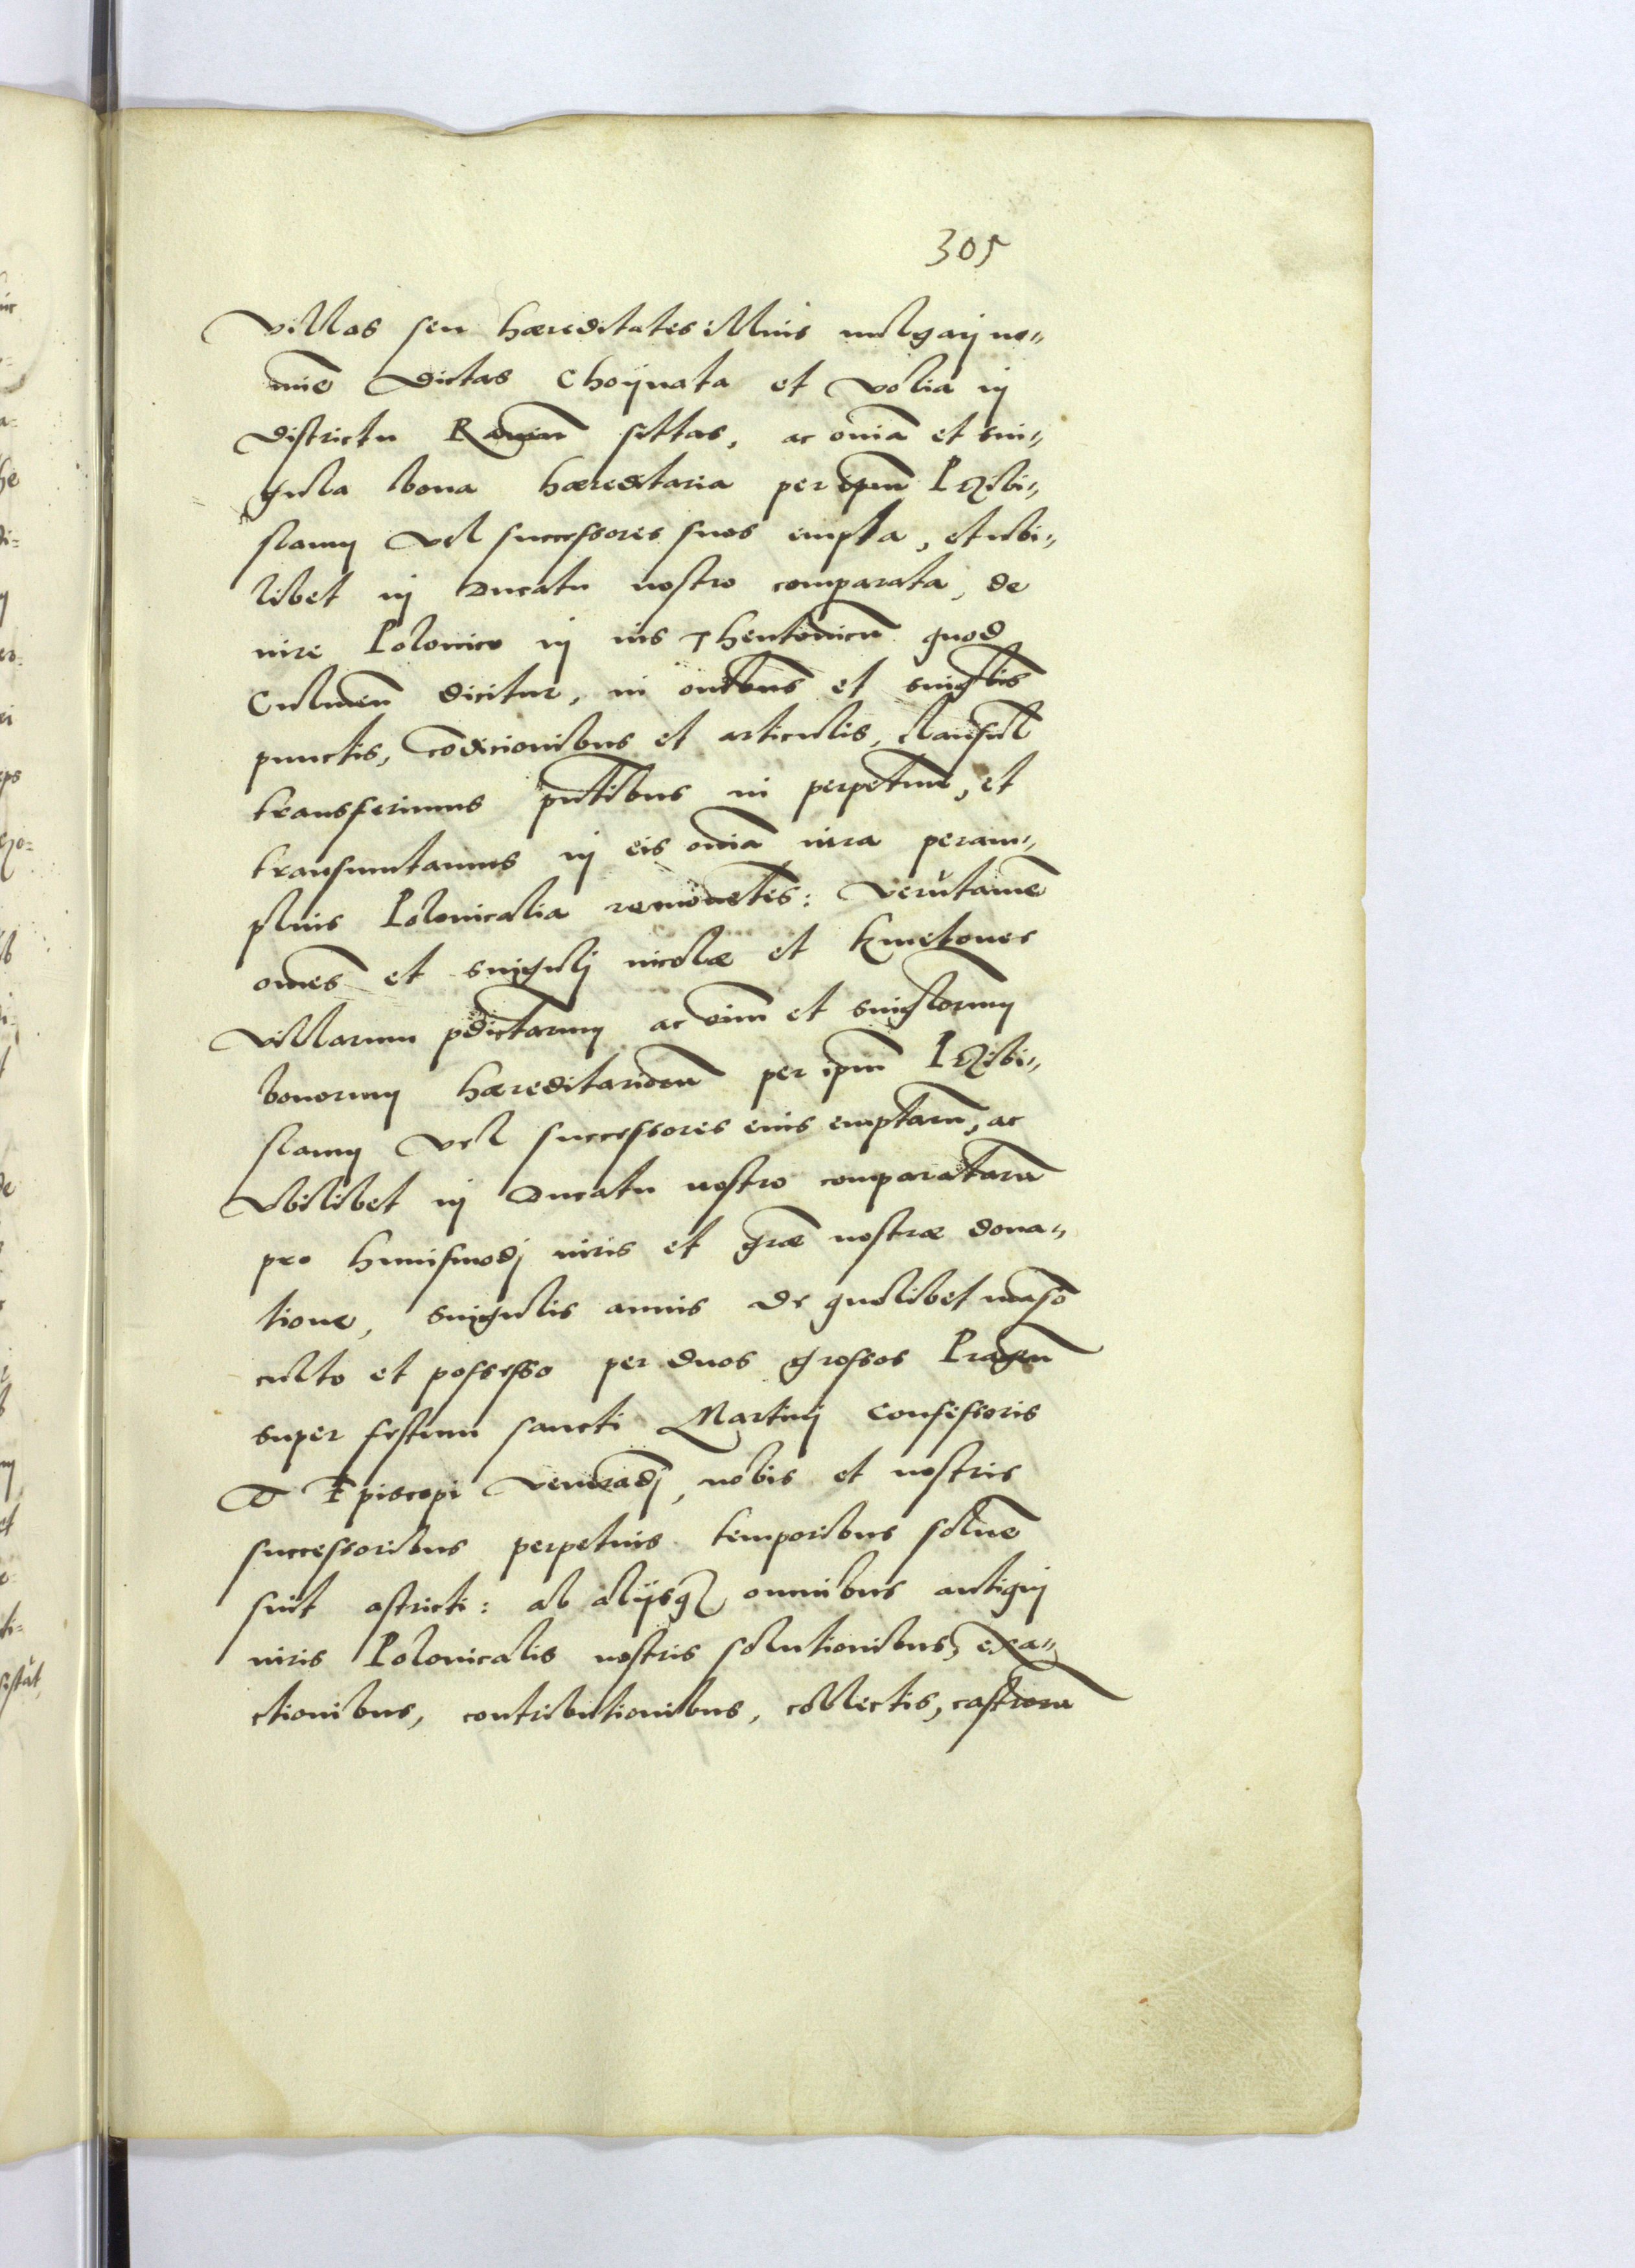 305
Villas seu hæreditates illius vulgarj no„
mīe dictas Choÿnata et Volia in
districtu Rauien̄ sittas, ac om̄ia et sin„
gula bona hæreditaria per ip̄um Przibi„
slaum vel successores suos empta, et ubi„
libet in Ducatu nostro comparata, de
iure Polonico in ius Theutonicū quod
Culmen̄ dicitur, in om̄ibus et singl̄is
punctis, cōdicionibus et articulis, clausul̄
transferimus pn̄tibus in perpetuū, et
transmutamus in eis om̄ia iura peram„
plius Polonicalia remouētes: Verūtamē
om̄es et singulj incolæ et kmetones
Villarum p̄dictarum ac om̄iū et singl̄orum
bonorum hæreditariorū per ip̄um Przibi„
slaum vel successores eius emptarū, ac
Vbilibet in Ducatu nostro comparatarū
pro huiusmodj iuris et gr̄æ nostræ dona„
tione, singulis annis de quolibet māso
culto et possesso per duos grossos Pragen̄
super festum sancti Martinj Confessoris
et Episcopi venerādj, nobis et nostris
successoribus perpetuis temporibus soluē
sint astricti: ab alijsq₃ omnibus antiquj
iuris Polonicalis nostris solutionibus, exa„
ctionibus, contributionibus, collectis, castrorū